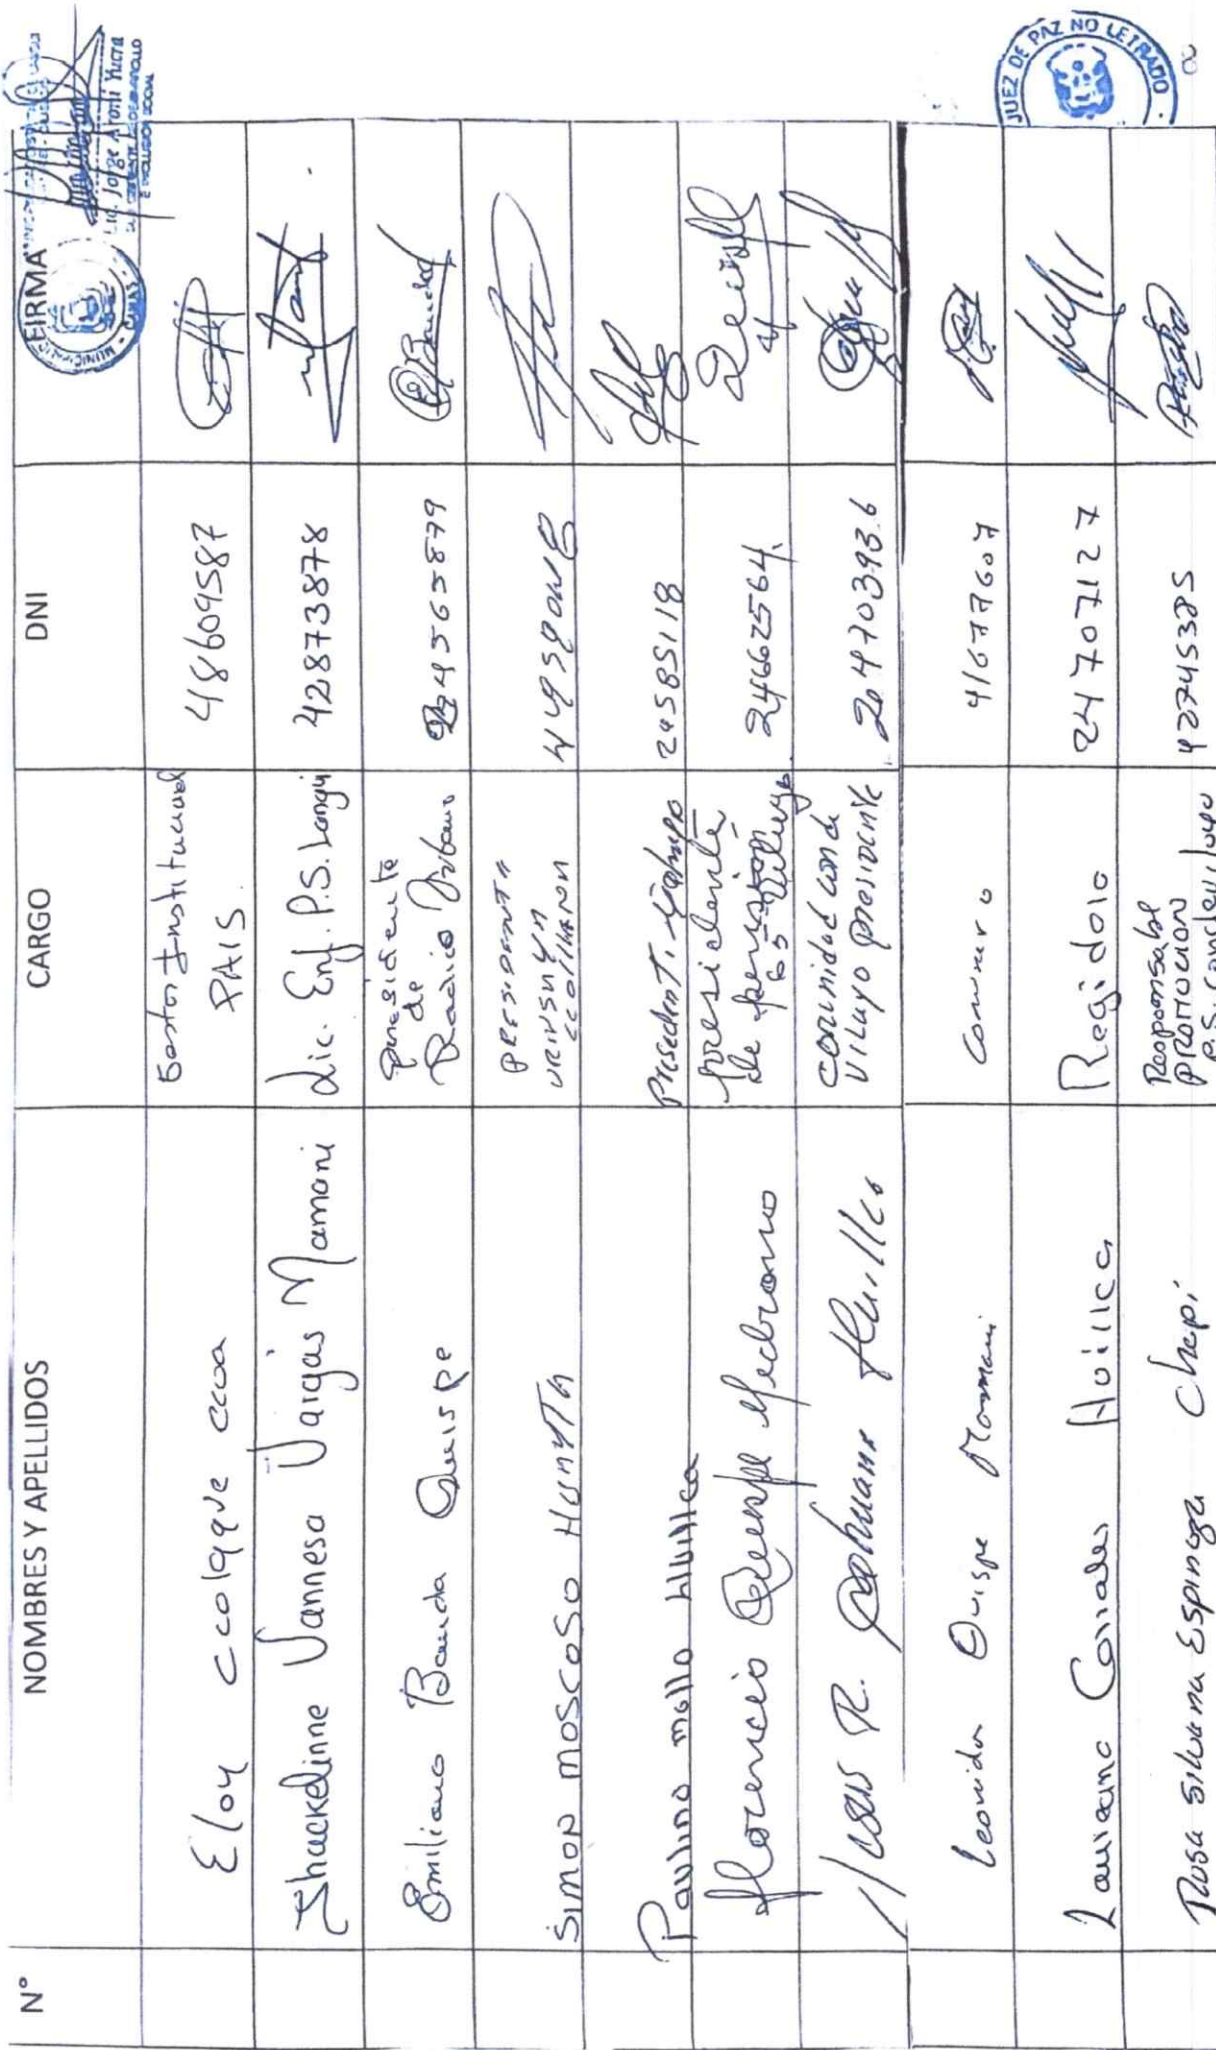 N° NOMBRES Y APELLIDOS CARGO DNI FIRMA
Lic. Jorge
E INCLUSION SOCIAL
Eloy Ccolque Ccoa Gestor Institucional PAIS. 48609587
Shackelinne Vannesa Vargas Mamani Lic. Enf. P.S. Langui 42873878
Emiliano Banda Quispe presidente de Radico Urbano 24565879
SIMON MOSCOSO HUAYTA PRESIDENTE URINSAYA CCOLLANA
Paulino mollo Huillca President. 24585118
florencio Quispe presidente de pension 65 24662564
R. Huillca comunidad con de viluyo presidente
Leonidas Quispe Mamani Comunero 41677607
Laureano Corrales Huillca Regidor 24707127
Rosa Silvana Espinoza Chepi Responsable PROMOCION P.S. 42745385
JUEZ DE PAZ NO LETRADO